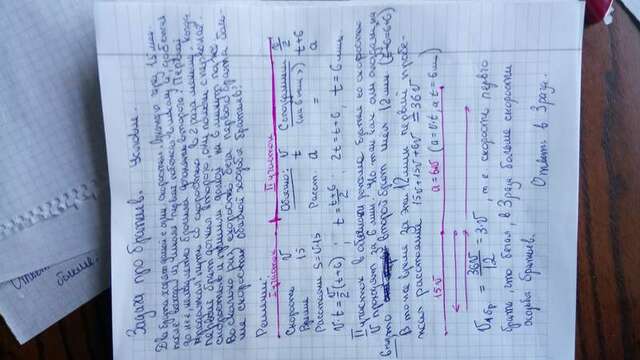 Ответ
больше.
Задача про братьев. Условие.
Два брата ходят домой с один. скоростью. Однажды через 15 мин
после выхода из школы первый побежал в школу и, добежав
до неё, немедленно бросился догонять второго. Первый
продолжал путь со скоростью в 2 раза меньшей. Когда
первый брат догнал второго, они пошли с первонач.
скоростью и пришли домой на 6 минут позже.
Во сколько раз скорость бега первого брата боль-
ше скорости обычной ходьбы братьев?
Решение:
I участок II участок
Скорость v Обычно: v С опозданием v/2
Время 15 t (на 6 мин >) t+6
Расстояние S=v·15 Расст. a = a
v·t = v/2 (t+6) ; t = (t+6)/2 2t=t+6, t=6 мин.
II участок в обычном режиме братья со скоростью
v проходят за 6 мин. Но так как они опоздали на
6 мин, то второй брат шёл 12 мин (t+6=6+6)
В то же время за эти 12 мин первый пробе-
жал расстояние 15v+15v+6v = 36v
15v a=6v (a=v·t, а t=6 мин)
v1 бр = 36v/12 = 3·v, т.е. скорость первого
брата, что бегал, в 3 раза больше скорости
ходьбы братьев.
Ответ: в 3 раза.